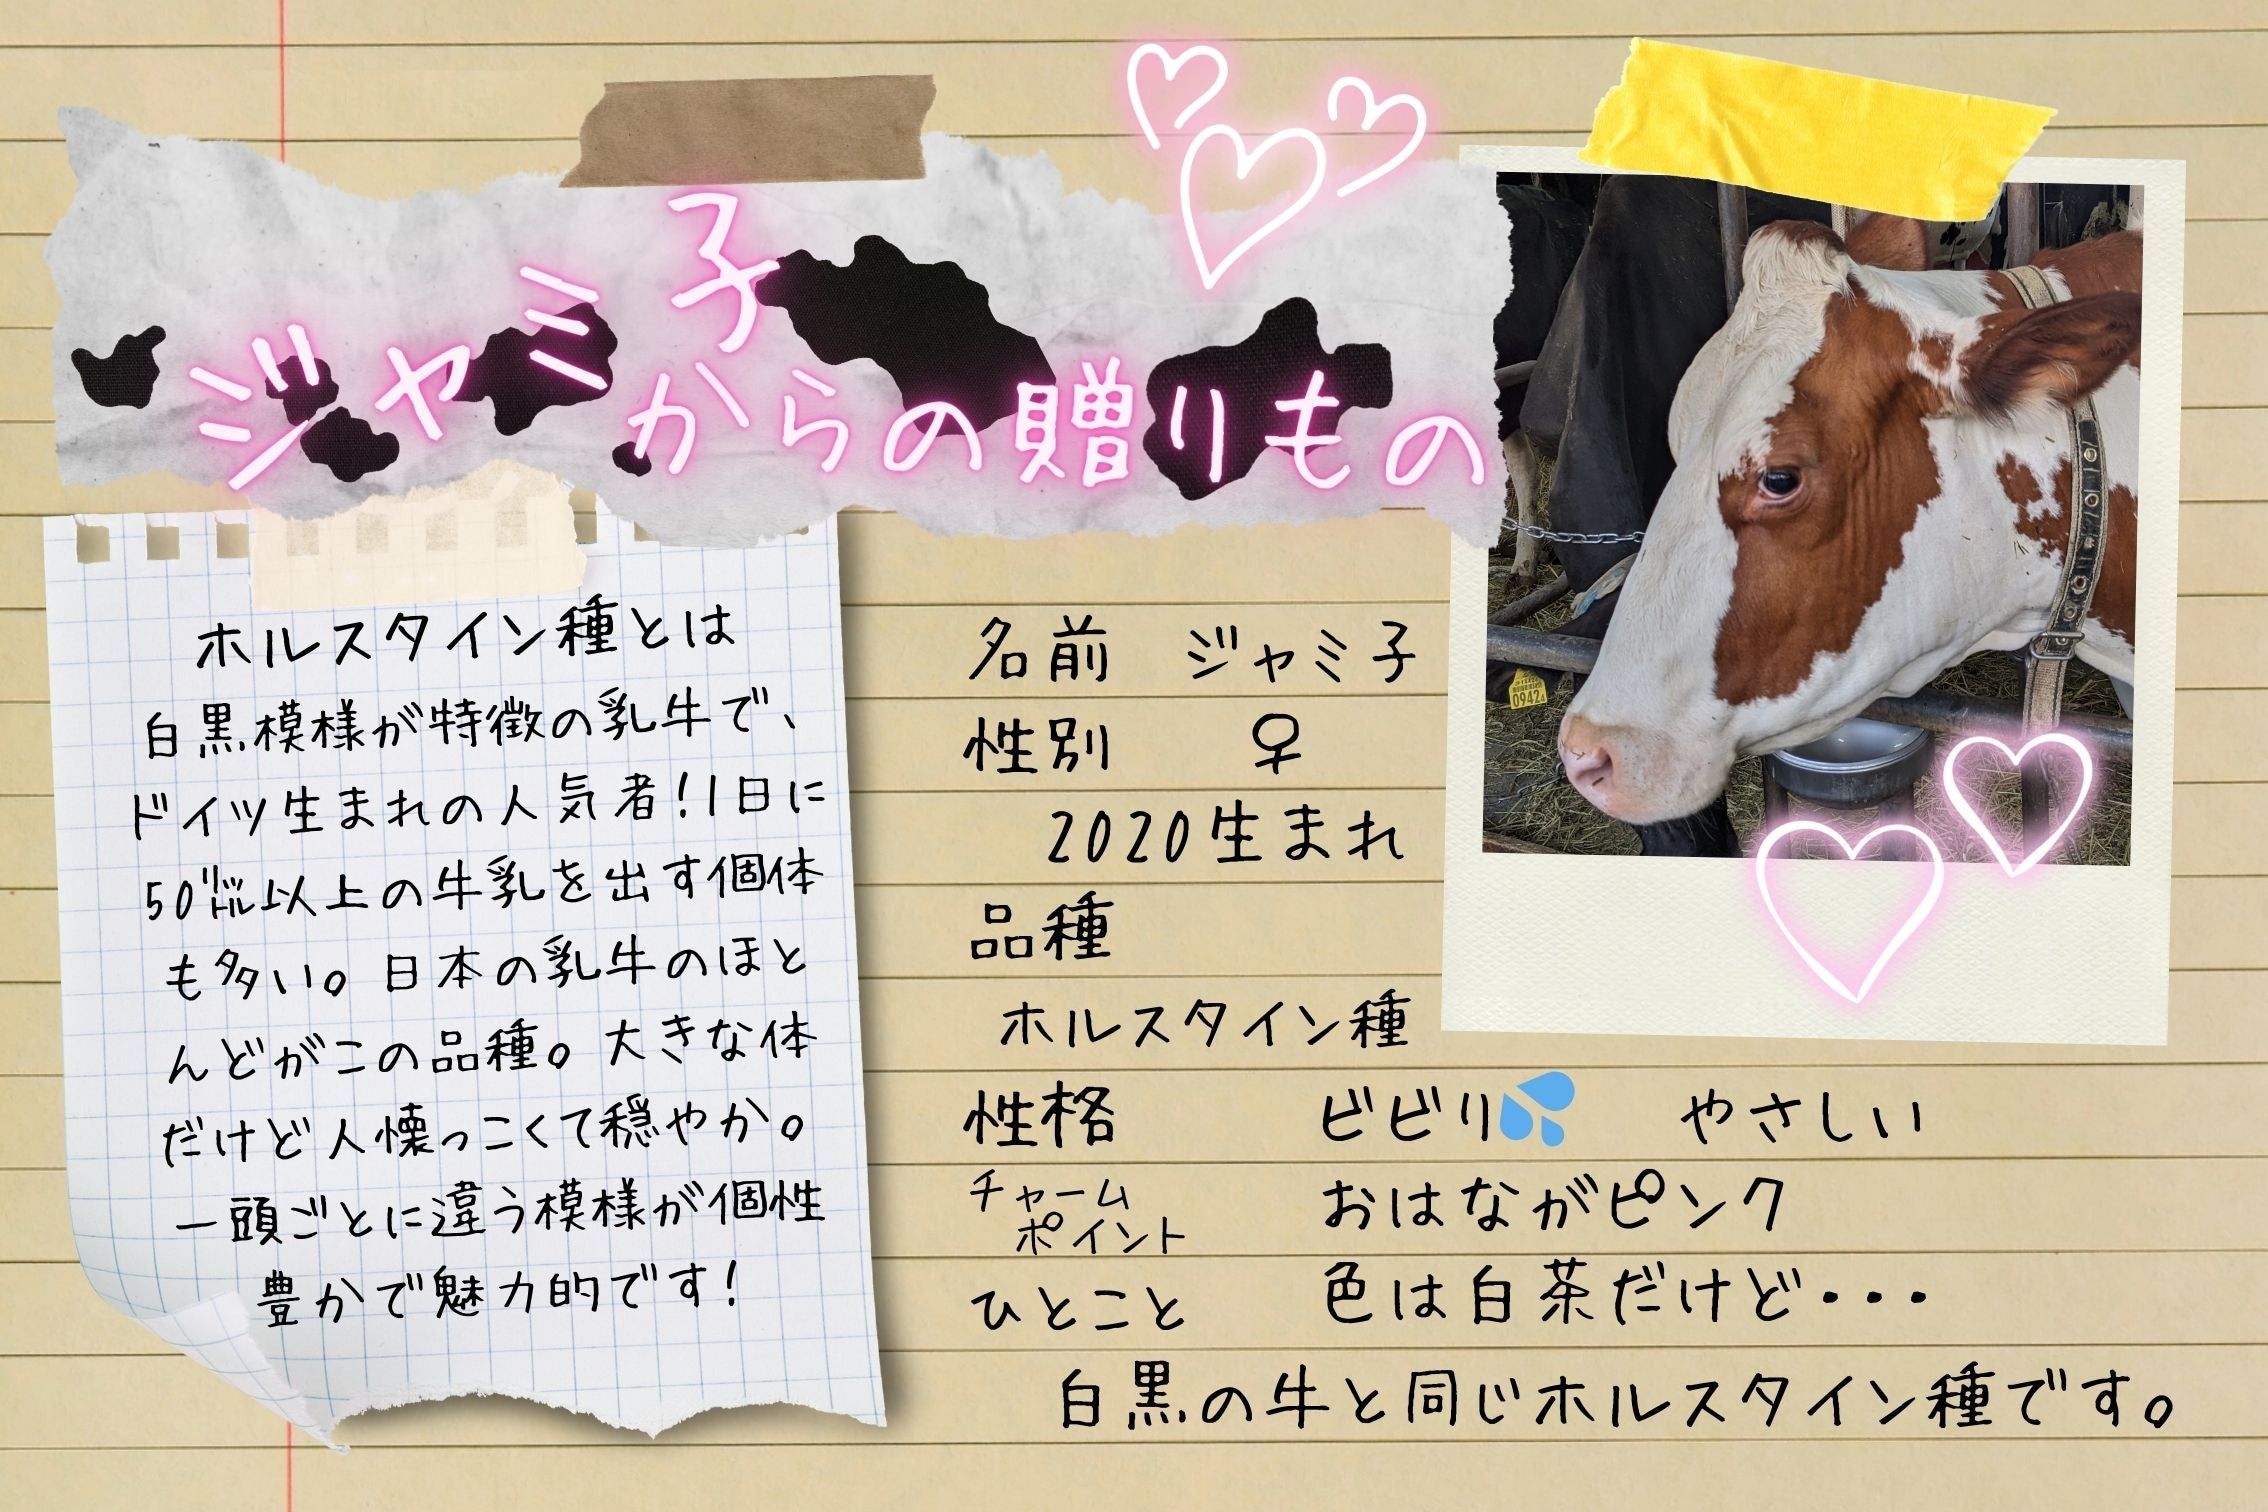 ジャミ子
からの贈りもの
ホルスタイン種とは
白黒模様が特徴の乳牛で、
ドイツ生まれの人気者!1日に
50㍑以上の牛乳を出す個体
も多い。日本の乳牛のほと
んどがこの品種。大きな体
だけど人懐っこくて穏やか。
一頭ごとに違う模様が個性
豊かで魅力的です!
名前 ジャミ子
性別 ♀
2020生まれ
品種
ホルスタイン種
性格 ビビリ💦 やさしい
チャーム
ポイント おはながピンク
ひとこと 色は白茶だけど・・・
白黒の牛と同じホルスタイン種です。
0942